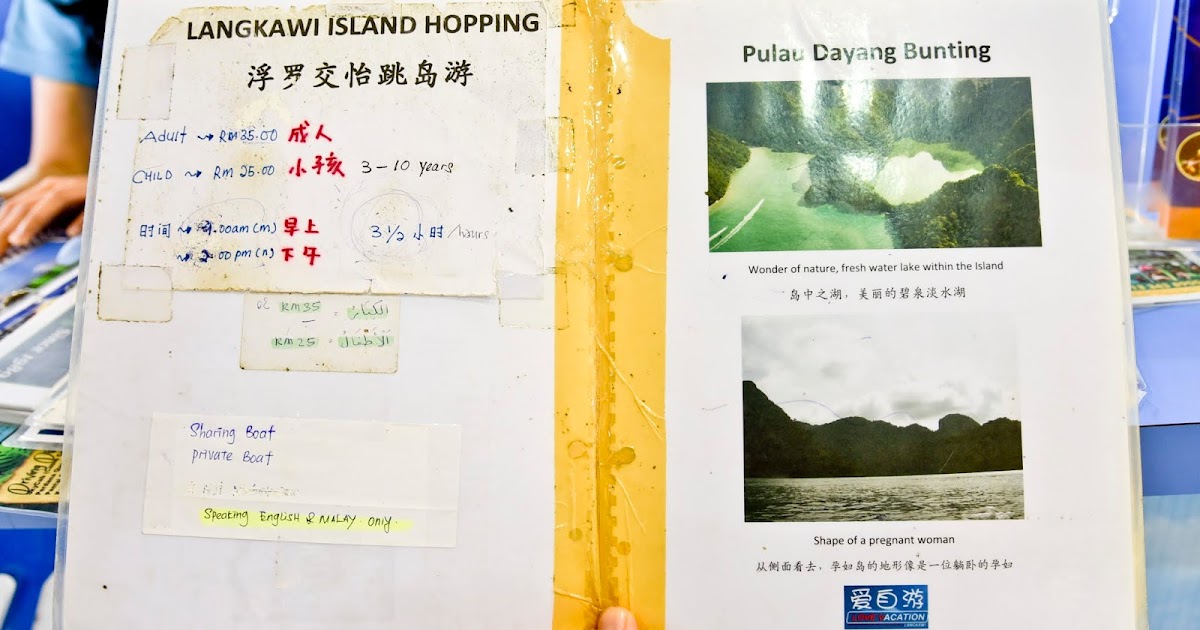 LANGKAWI ISLAND HOPPING
浮罗交怡跳岛游
Adult → RM35.00 成人
CHILD → RM 25.00 小孩 3-10 years
时间 → 9.00am (m) 早上 3 1/2 小时/hours
→ 2.00 pm (n) 下午
RM35 =
RM25 =
Sharing Boat
private Boat
Speaking English & MALAY. Only.
Pulau Dayang Bunting
Wonder of nature, fresh water lake within the Island
岛中之湖，美丽的碧泉淡水湖
Shape of a pregnant woman
从侧面看去，孕妇岛的地形像是一位躺卧的孕妇
爱自游
LOVE VACATION